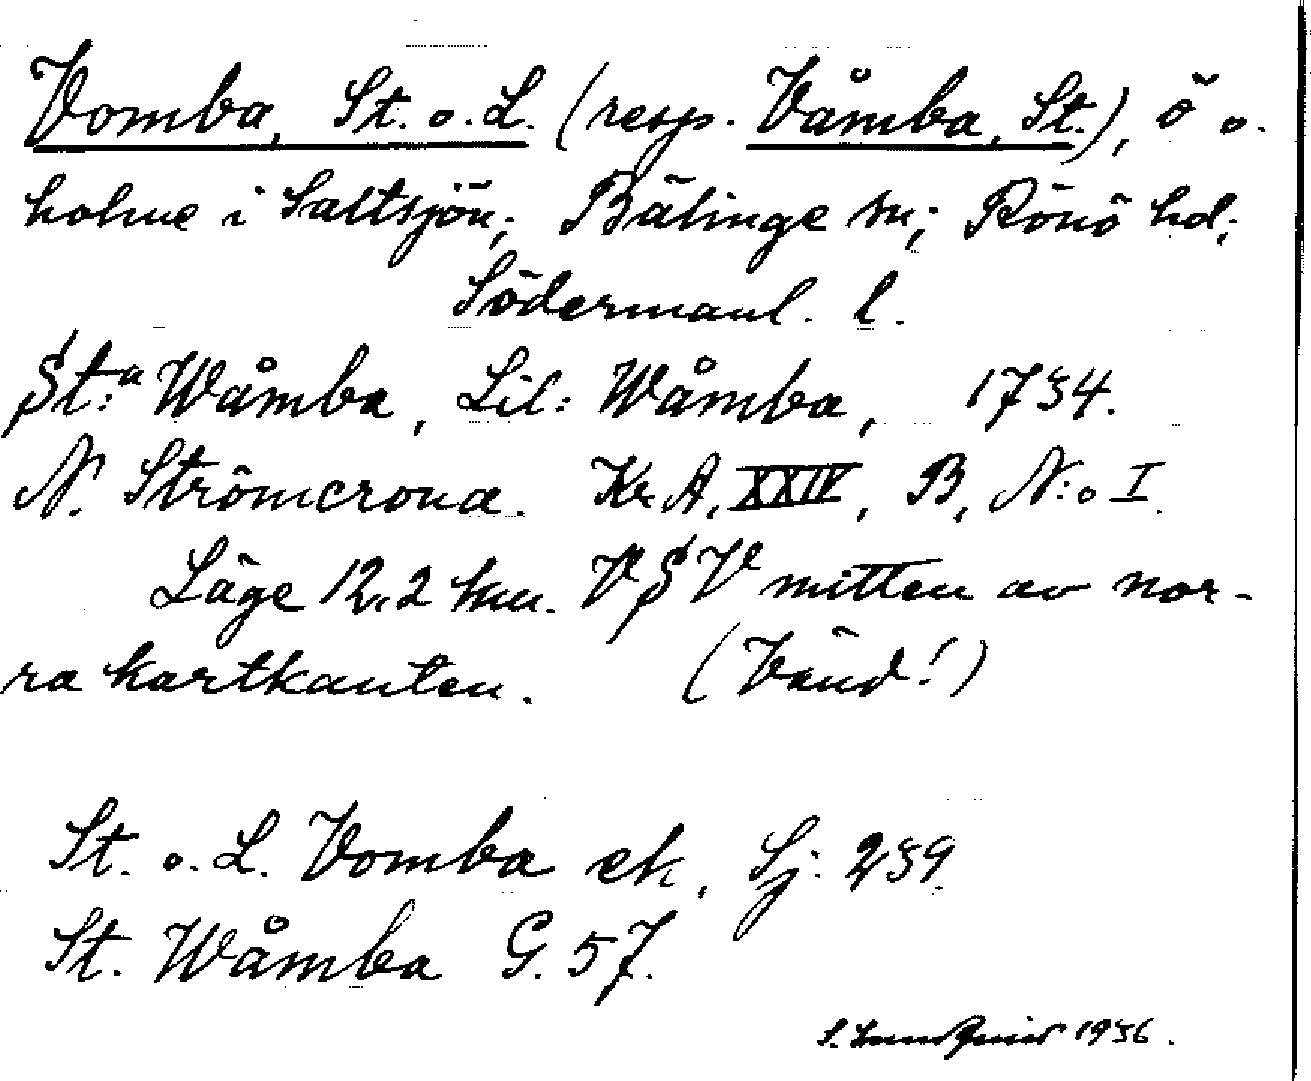 Vomba, St. o. L. (resp. Våmba, St.), ö o.
holme i Saltsjön; Bälinge sn; Rönö hd;
Södermanl. l.
St:a Wåmba, Lil: Wåmba, 1734.
N. Strömcrona. Kr. A, XXIV, B, N:o I.
Läge 12,2 km. V§V mitten av nor-
ra kartkanten. (Vänd!)
St. o. L. Vomba ek. Sj: 239
St. Wåmba G. 57.
S. Lundqvist 1936.